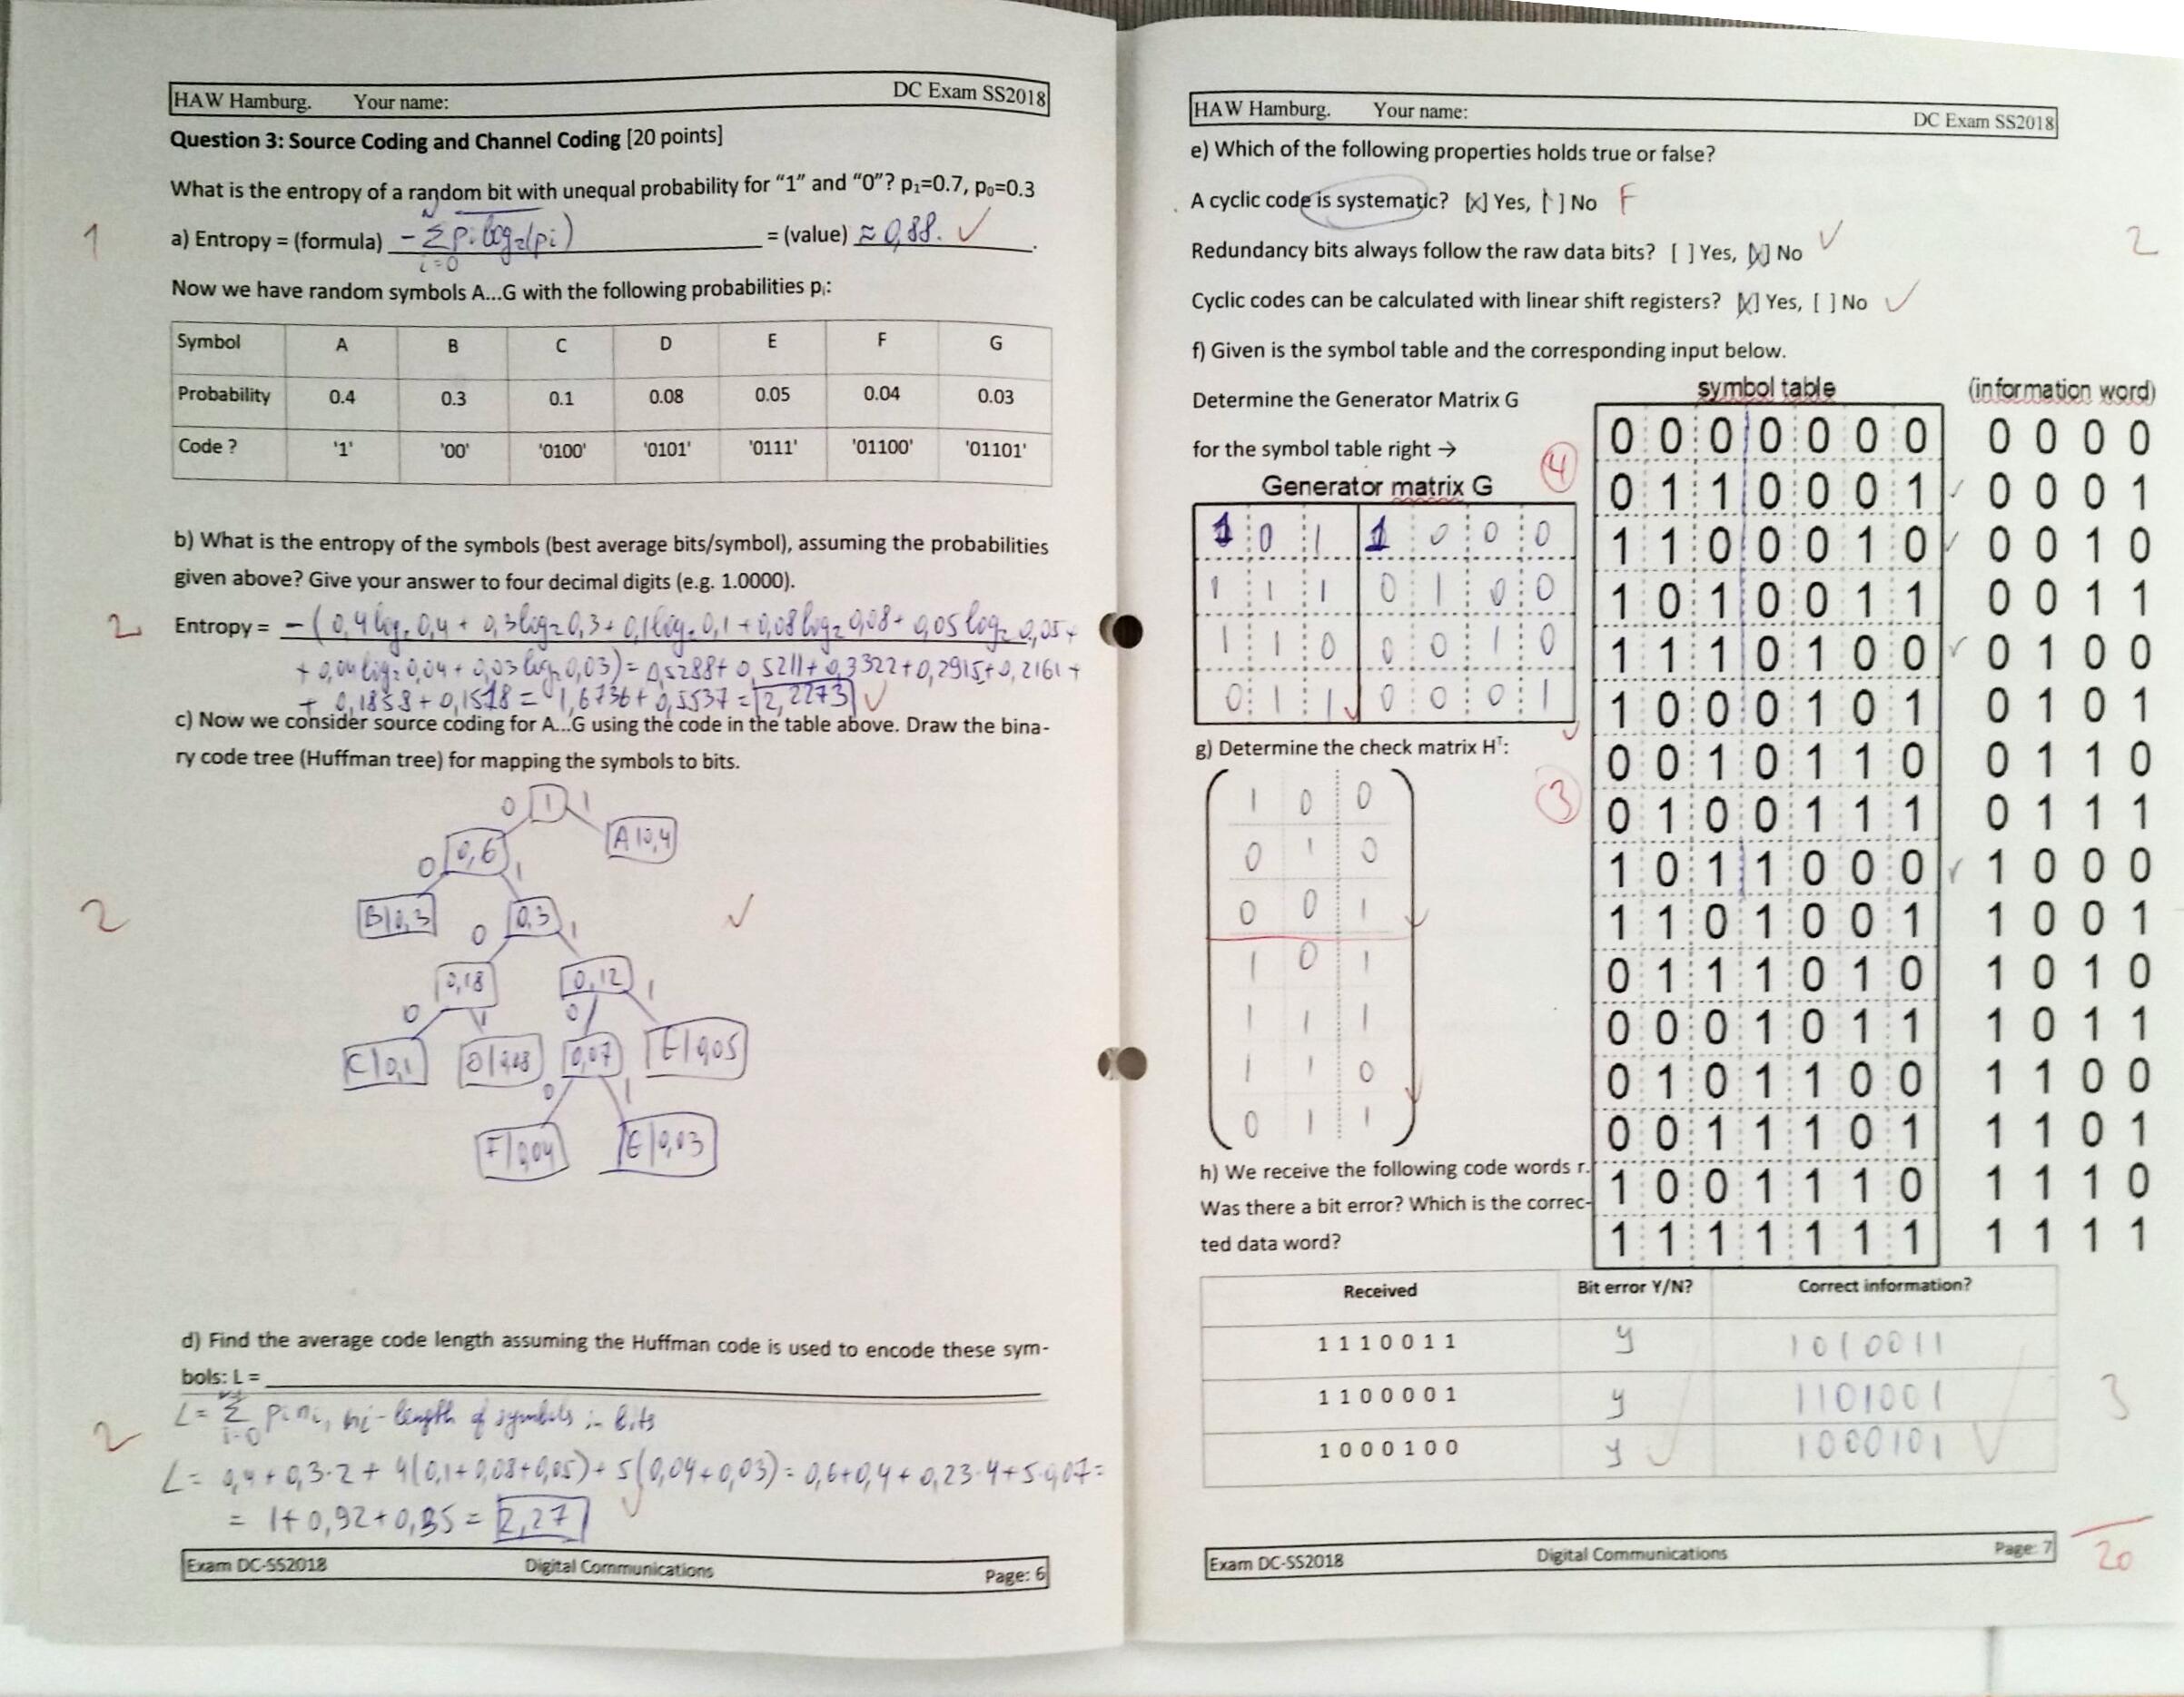 HAW Hamburg. Your name: DC Exam SS2018
Question 3: Source Coding and Channel Coding [20 points]
What is the entropy of a random bit with unequal probability for "1" and "0"? p₁=0.7, p₀=0.3
1
a) Entropy = (formula) -Σ pi log₂(pi) = (value) ≈ 0,88. ✓
i=0
Now we have random symbols A...G with the following probabilities pᵢ:
Symbol A B C D E F G
Probability 0.4 0.3 0.1 0.08 0.05 0.04 0.03
Code ? '1' '00' '0100' '0101' '0111' '01100' '01101'
b) What is the entropy of the symbols (best average bits/symbol), assuming the probabilities
given above? Give your answer to four decimal digits (e.g. 1.0000).
2
Entropy = -(0,4log₂0,4 + 0,3log₂0,3 + 0,1log₂0,1 + 0,08log₂0,08 + 0,05log₂0,05+
+ 0,04log₂0,04 + 0,03log₂0,03) = 0,5288 + 0,5211 + 0,3322 + 0,2915 + 0,2161 +
+ 0,1858 + 0,1518 = 1,6736 + 0,5537 = 2,2273 ✓
c) Now we consider source coding for A...G using the code in the table above. Draw the bina-
ry code tree (Huffman tree) for mapping the symbols to bits.
0 1 1
0,6 A|0,4
0 1
B|0,3 0,3
2 ✓
0 1
0,18 0,12
0 1 0 1
C|0,1 D|0,08 0,07 E|0,05
0 1
F|0,04 G|0,03
d) Find the average code length assuming the Huffman code is used to encode these sym-
bols: L =
L = Σ pi ni, ni - length of symbols in bits
i=0
2
L = 0,4 + 0,3·2 + 4(0,1+0,08+0,05) + 5(0,04+0,03) = 0,6+0,4 + 0,23·4 + 5·0,07 =
= 1+0,92+0,35 = 2,27 ✓
Exam DC-SS2018 Digital Communications Page: 6
HAW Hamburg. Your name: DC Exam SS2018
e) Which of the following properties holds true or false?
A cyclic code is systematic? [x] Yes, [ ] No F
Redundancy bits always follow the raw data bits? [ ] Yes, [x] No ✓
2
Cyclic codes can be calculated with linear shift registers? [x] Yes, [ ] No ✓
f) Given is the symbol table and the corresponding input below.
Determine the Generator Matrix G
for the symbol table right →
4
Generator matrix G
1 0 1 1 0 0 0
1 1 1 0 1 0 0
1 1 0 0 0 1 0
0 1 1 0 0 0 1
symbol table (information word)
0 0 0 0 0 0 0 0 0 0 0
0 1 1 0 0 0 1 0 0 0 1
1 1 0 0 0 1 0 0 0 1 0
1 0 1 0 0 1 1 0 0 1 1
1 1 1 0 1 0 0 0 1 0 0
1 0 0 0 1 0 1 0 1 0 1
0 0 1 0 1 1 0 0 1 1 0
0 1 0 0 1 1 1 0 1 1 1
1 0 1 1 0 0 0 1 0 0 0
1 1 0 1 0 0 1 1 0 0 1
0 1 1 1 0 1 0 1 0 1 0
0 0 0 1 0 1 1 1 0 1 1
0 1 0 1 1 0 0 1 1 0 0
0 0 1 1 1 0 1 1 1 0 1
1 0 0 1 1 1 0 1 1 1 0
1 1 1 1 1 1 1 1 1 1 1
g) Determine the check matrix Hᵀ:
3
1 0 0
0 1 0
0 0 1
1 0 1
1 1 1
1 1 0
0 1 1
h) We receive the following code words r.
Was there a bit error? Which is the correc-
ted data word?
Received Bit error Y/N? Correct information?
1 1 1 0 0 1 1 y 1010011
1 1 0 0 0 0 1 y 1101001
3
1 0 0 0 1 0 0 y ✓ 1000101 ✓
20
Exam DC-SS2018 Digital Communications Page: 7